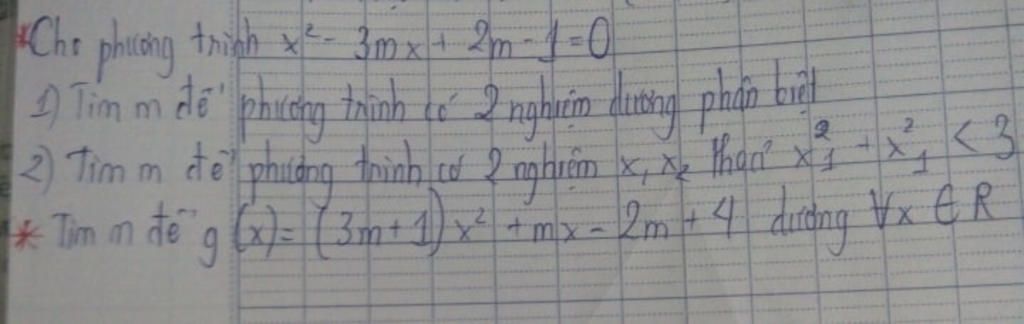 *Cho phương trình x² - 3mx + 2m - 1 = 0
1) Tìm m để phương trình có 2 nghiệm dương phân biệt
2) Tìm m để phương trình có 2 nghiệm x₁ x₂ thoả x₁² + x₁² < 3
* Tìm m để g(x) = (3m + 1)x² + mx - 2m + 4 dương ∀x ∈ R